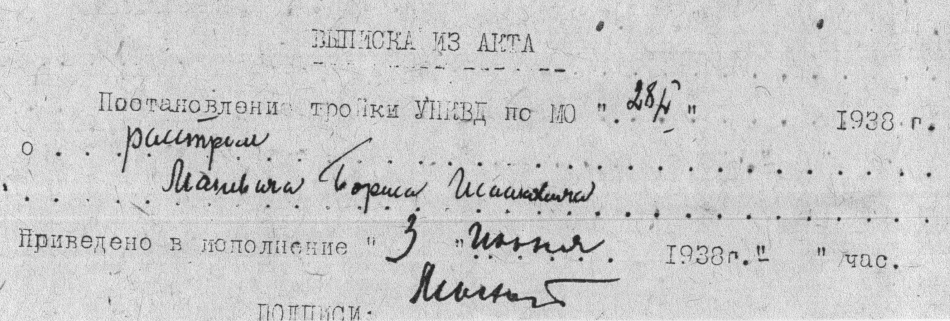 ВЫПИСКА ИЗ АКТА
Постановление тройки УНКВД по МО " 28/V " 1938 г.
о расстреле
Бориса Исааковича
Приведено в исполнение " 3 " Июня 1938г. " " час.
ПОДПИСИ: